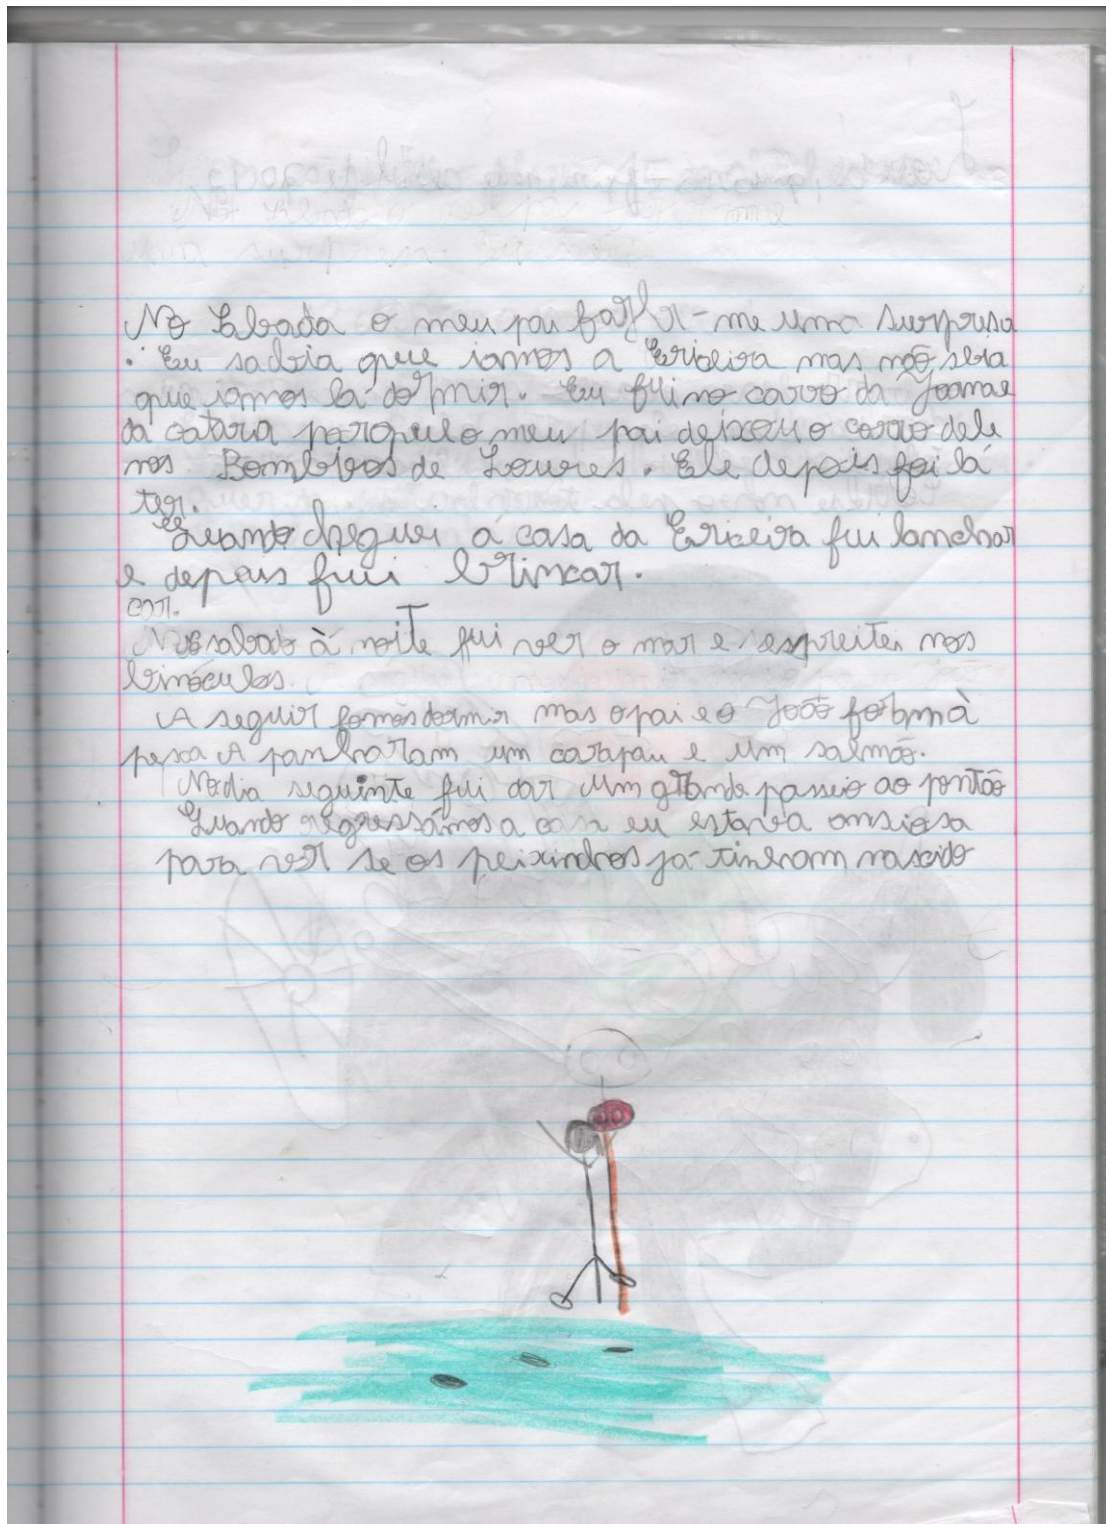 No Sábado o meu pai fazer-me uma surpresa
. Eu sabia que iamos a Ericeira mas não sabia
que iamos lá dormir. Eu fui no carro da Joana e
da catara porque o meu pai deixou o carro dele
nos Bombeiros de Loures. Ele depois foi lá
ter.
Quando cheguei á casa da Ericeira fui lanchar
e depois fui brincar.
car.
No sabado à noite fui ver o mar e espreitei nos
binóculos.
A seguir fomos dormir mas o pai e o João foram à
pesca A panharam um carapau e um salmão.
No dia seguinte fui dar um grande passeio ao pontão
Quando regressámos a casa eu estava ansiosa
para ver se os peixinhos já tinham nascido